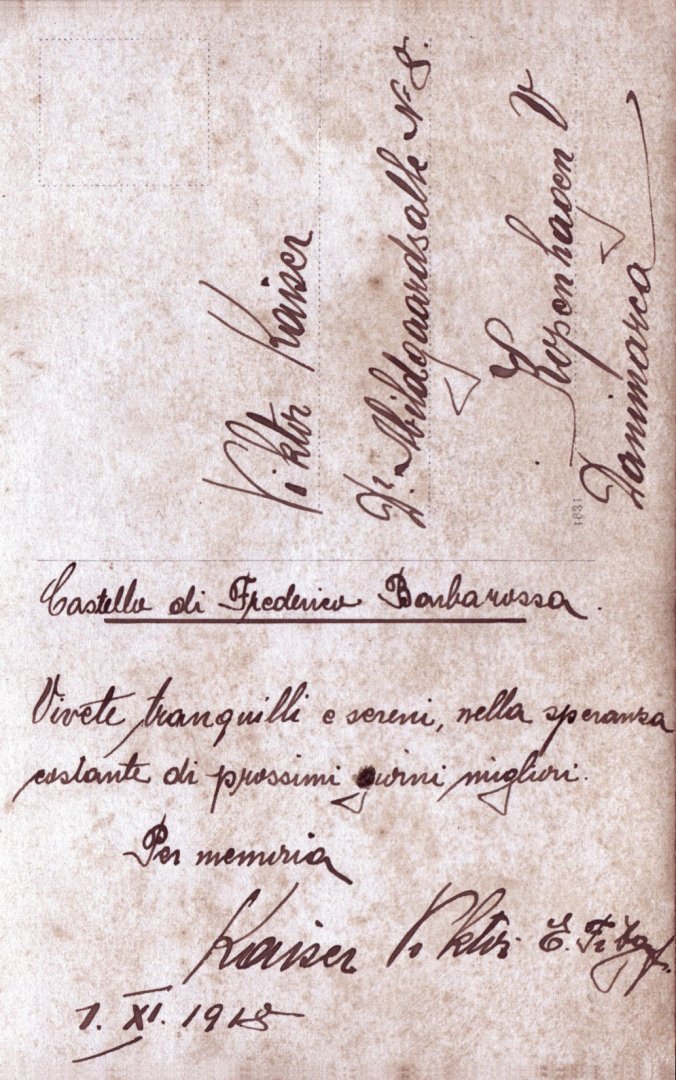 Viktor Kaiser
Dr. Abildgaardsalle No 8.
Kopenhagen V
Danimarca
1631
Castello di Frederico Barbarossa.
Vivete tranquilli e sereni, nella speranza
costante di prossimi giorni migliori.
Per memoria
Kaiser Viktor E.
1. XI. 1918